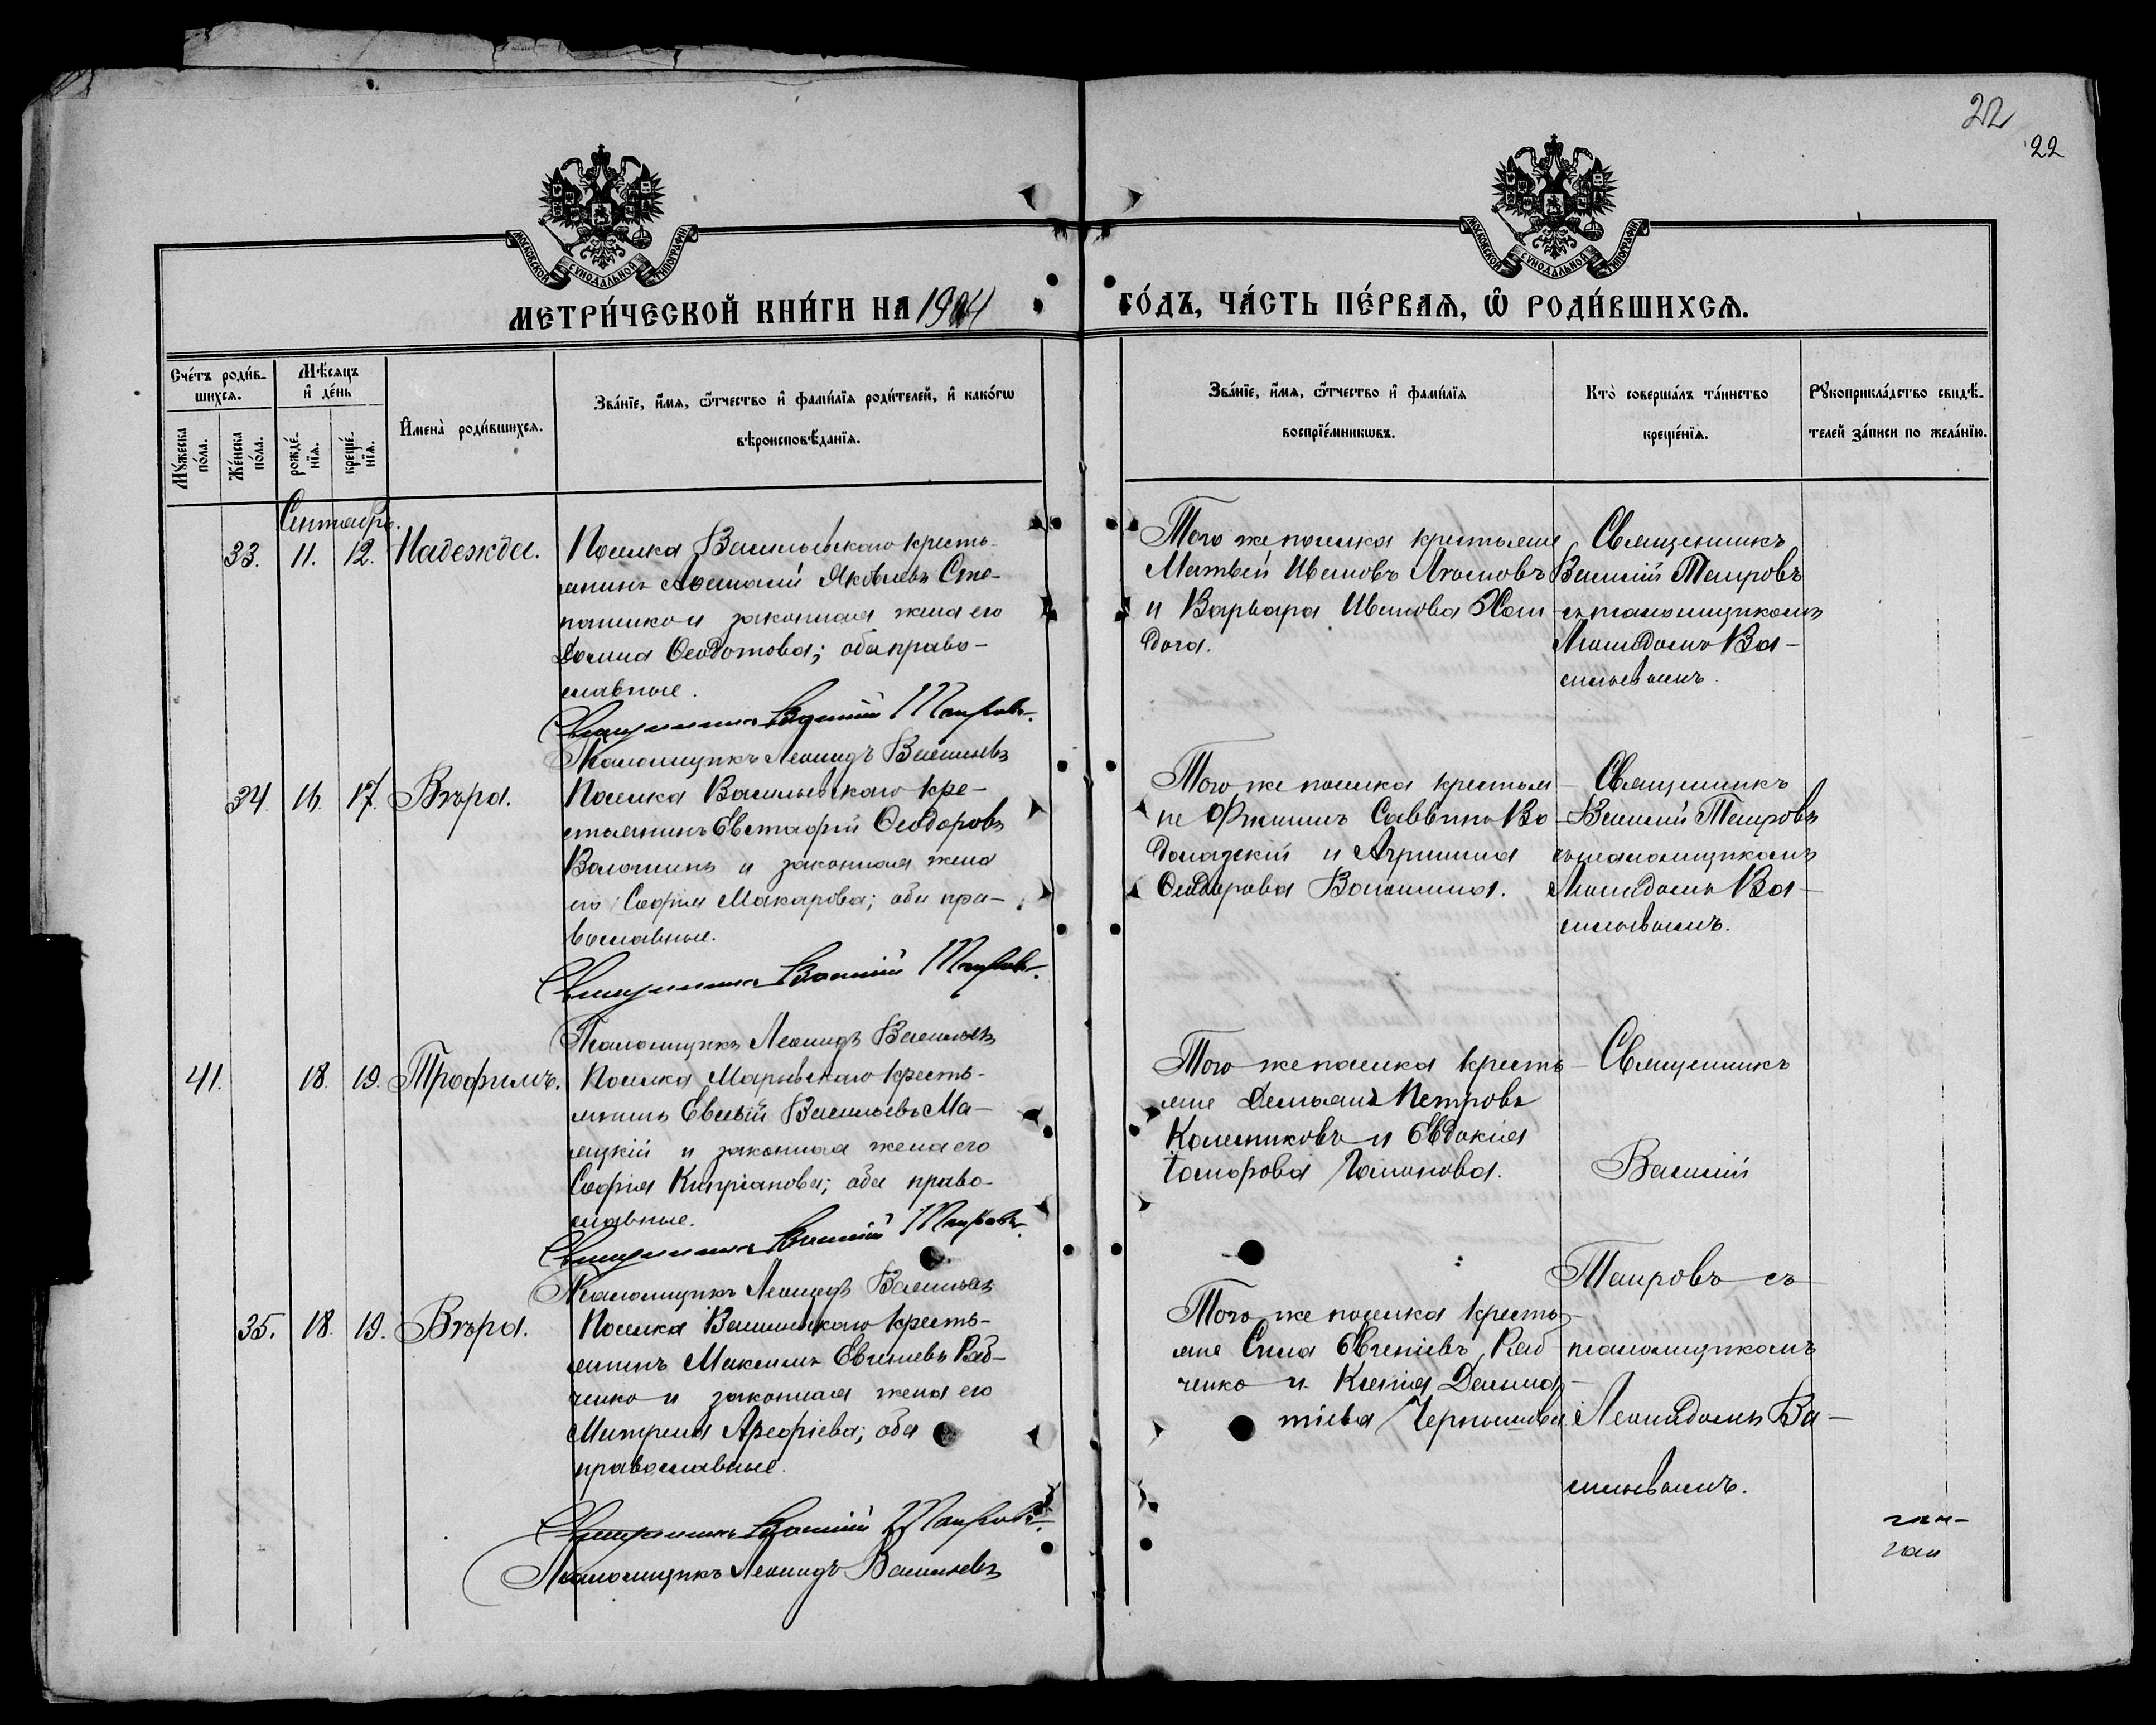 22
22
МОСКОВСКОЙ СУНОДАЛЬНОЙ ТИПОГРАФІИ
МОСКОВСКОЙ СУНОДАЛЬНОЙ ТИПОГРАФІИ
МЕТРИ́ЧЕСКОЙ КНИ́ГИ НА 1904
ГО́ДЪ, ЧА́СТЬ ПЕ́РВАѦ, Ѡ РОДИ́ВШИХСѦ.
Сче́тъ роди́в-
шихсѧ.
Мꙋ́жеска
по́ла.
Же́нска
по́ла.
Мѣ́сѧцъ
и҆ де́нь
рожде́-
нїѧ.
креще́-
нїѧ.
И҆мена̀ роди́вшихсѧ.
Зва́нїе, и҆́мѧ, ѻ҆́тчество и҆ фами́лїѧ роди́телей, и҆ како́гѡ
вѣроисповѣ́данїѧ.
Зва́нїе, и҆́мѧ, ѻ҆́тчество и҆ фами́лїѧ
воспрїе́мникѡвъ.
Кто̀ соверша́лъ та́инство
креще́нїѧ.
Рꙋкоприкла́дство свидѣ́-
телей за́писи по жела́нїю.
Сентябрь.
33. 11. 12. Надежда.
Поселка Васильевскаго кресть-
янинъ Яковлевъ Сте-
паненко и законная жена его
Ѳеодотова; оба право-
славные.
Священникъ Василій Таировъ.
Псаломщикъ Леонидъ Васильевъ
Того же поселка крестьяне
Матвѣй Ивановъ
и Варвара Иванова
Священникъ
Василій Таировъ
съ псаломщикомъ
Леонидомъ Ва-
сильевымъ.
34. 16. 17. Вѣра.
Поселка Васильевскаго кре-
стьянинъ Евстафій Ѳеодоровъ
Волошинъ и законная жена
его Софія Макарова; оба пра-
вославные.
Священникъ Василій Таировъ.
Псаломщикъ Леонидъ Васильевъ
Того же поселка крестья-
не Филиппъ Саввинъ Во-
долазскій и Агриппина
Ѳеодорова Волошина.
Священникъ
Василій Таировъ
съ псаломщикомъ
Леонидомъ Ва-
сильевымъ.
41. 18. 19. Трофимъ.
Поселка Марьевскаго кресть-
янинъ Евсевій Васильевъ Ма-
лицкій и законная жена его
Софія Кипріанова; оба право-
славные.
Священникъ Василій Таировъ.
Псаломщикъ Леонидъ Васильевъ
Того же поселка кресть-
яне Демьянъ Петровъ
Колесниковъ и Евдокія
Священникъ
Василій
Таировъ съ
псаломщикомъ
Леонидомъ Ва-
сильевымъ.
35. 18. 19. Вѣра.
Поселка Васильевскаго кресть-
янинъ Максимъ Евгеніевъ Ряб-
ченко и законная жена его
Митрена Арефіева; оба
православные.
Священникъ Василій Таировъ.
Псаломщикъ Леонидъ Васильевъ
Того же поселка кресть-
яне Сила Евгеніевъ Ряб-
ченко и Ксенія